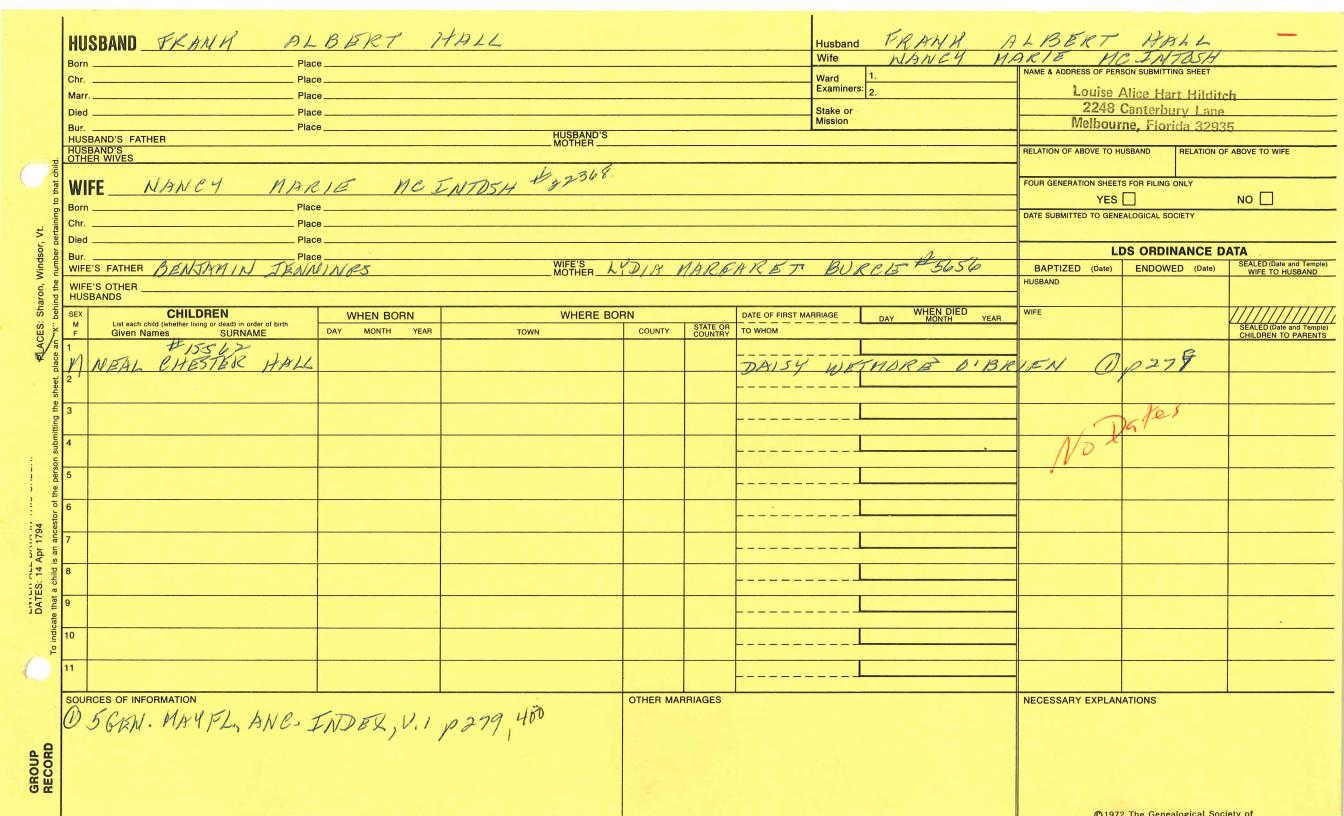 HUSBAND FRANK ALBERT HALL
Born Place
Chr. Place
Marr. Place
Died Place
Bur. Place
HUSBAND'S FATHER HUSBAND'S MOTHER
HUSBAND'S OTHER WIVES
Husband FRANK ALBERT HALL
Wife NANCY MARIE MCINTOSH
Ward Examiners: 1.
2.
Stake or Mission
NAME & ADDRESS OF PERSON SUBMITTING SHEET
Louise Alice Hart Hilditch
2248 Canterbury Lane
Melbourne, Florida 32935
RELATION OF ABOVE TO HUSBAND RELATION OF ABOVE TO WIFE
FOUR GENERATION SHEETS FOR FILING ONLY
YES NO
DATE SUBMITTED TO GENEALOGICAL SOCIETY
WIFE NANCY MARIE MCINTOSH #22368
Born Place
Chr. Place
Died Place
Bur. Place
WIFE'S FATHER BENJAMIN JENNINGS WIFE'S MOTHER LYDIA MARGARET #5656
WIFE'S OTHER HUSBANDS
LDS ORDINANCE DATA
BAPTIZED (Date) ENDOWED (Date) SEALED (Date and Temple) WIFE TO HUSBAND
HUSBAND
WIFE
SEALED (Date and Temple) CHILDREN TO PARENTS
SEX M F
CHILDREN
List each child (whether living or dead) in order of birth
Given Names SURNAME
WHEN BORN
DAY MONTH YEAR
WHERE BORN
TOWN COUNTY STATE OR COUNTRY
DATE OF FIRST MARRIAGE
TO WHOM
WHEN DIED
DAY MONTH YEAR
1 #15562
M NEAL CHESTER HALL DAISY WETMORE O'BRIEN ① p279
2
3
No Dates
4
5
6
7
8
9
10
11
SOURCES OF INFORMATION
① 5 GEN. MAYFL, ANC. INDEX, V.1 p279, 400
OTHER MARRIAGES
NECESSARY EXPLANATIONS
©1972 The Genealogical Society of
PLACES: Sharon, Windsor, Vt.
DATES: 14 Apr 1794
To indicate that a child is an ancestor of the person submitting the sheet, place an "X" behind the number pertaining to that child.
GROUP RECORD